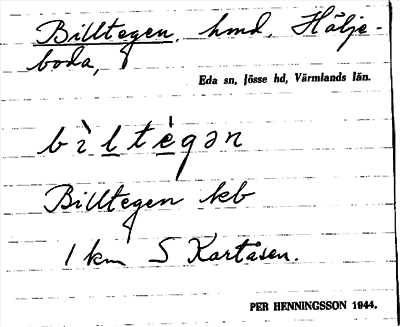 Billtegen, hmd, Hälje-
boda,
Eda sn, Jösse hd, Värmlands län.
bìltègən
Billtegen kb
1 km S Kartåsen.
PER HENNINGSSON 1944.